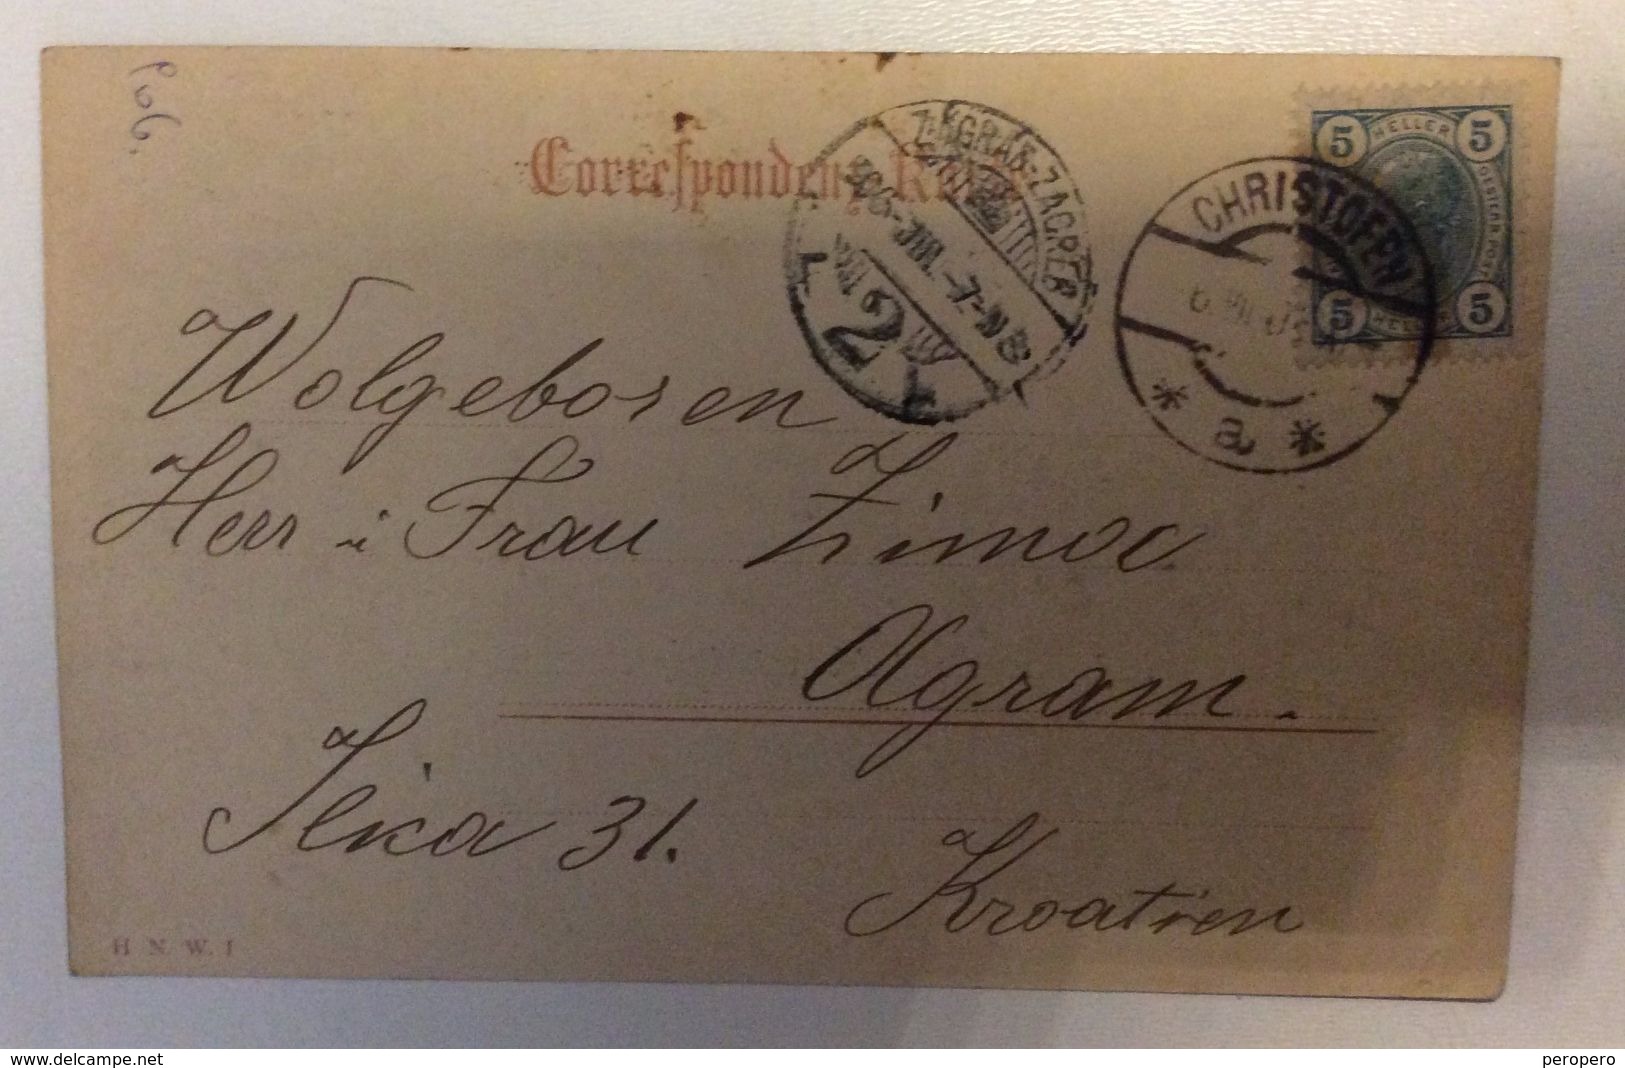 Correspondenz-Karte
ZAGRAB-ZAGREB
905-JUL.-7-N8
2
5 HELLER 5
OESTERR.POST
5 HELLER 5
CHRISTOFEN
* a *
Wolgeboren
Herr u Frau Zimoc
Agram.
Ilica 31.
Kroatien
H N. W. I
www.delcampe.net
peropero